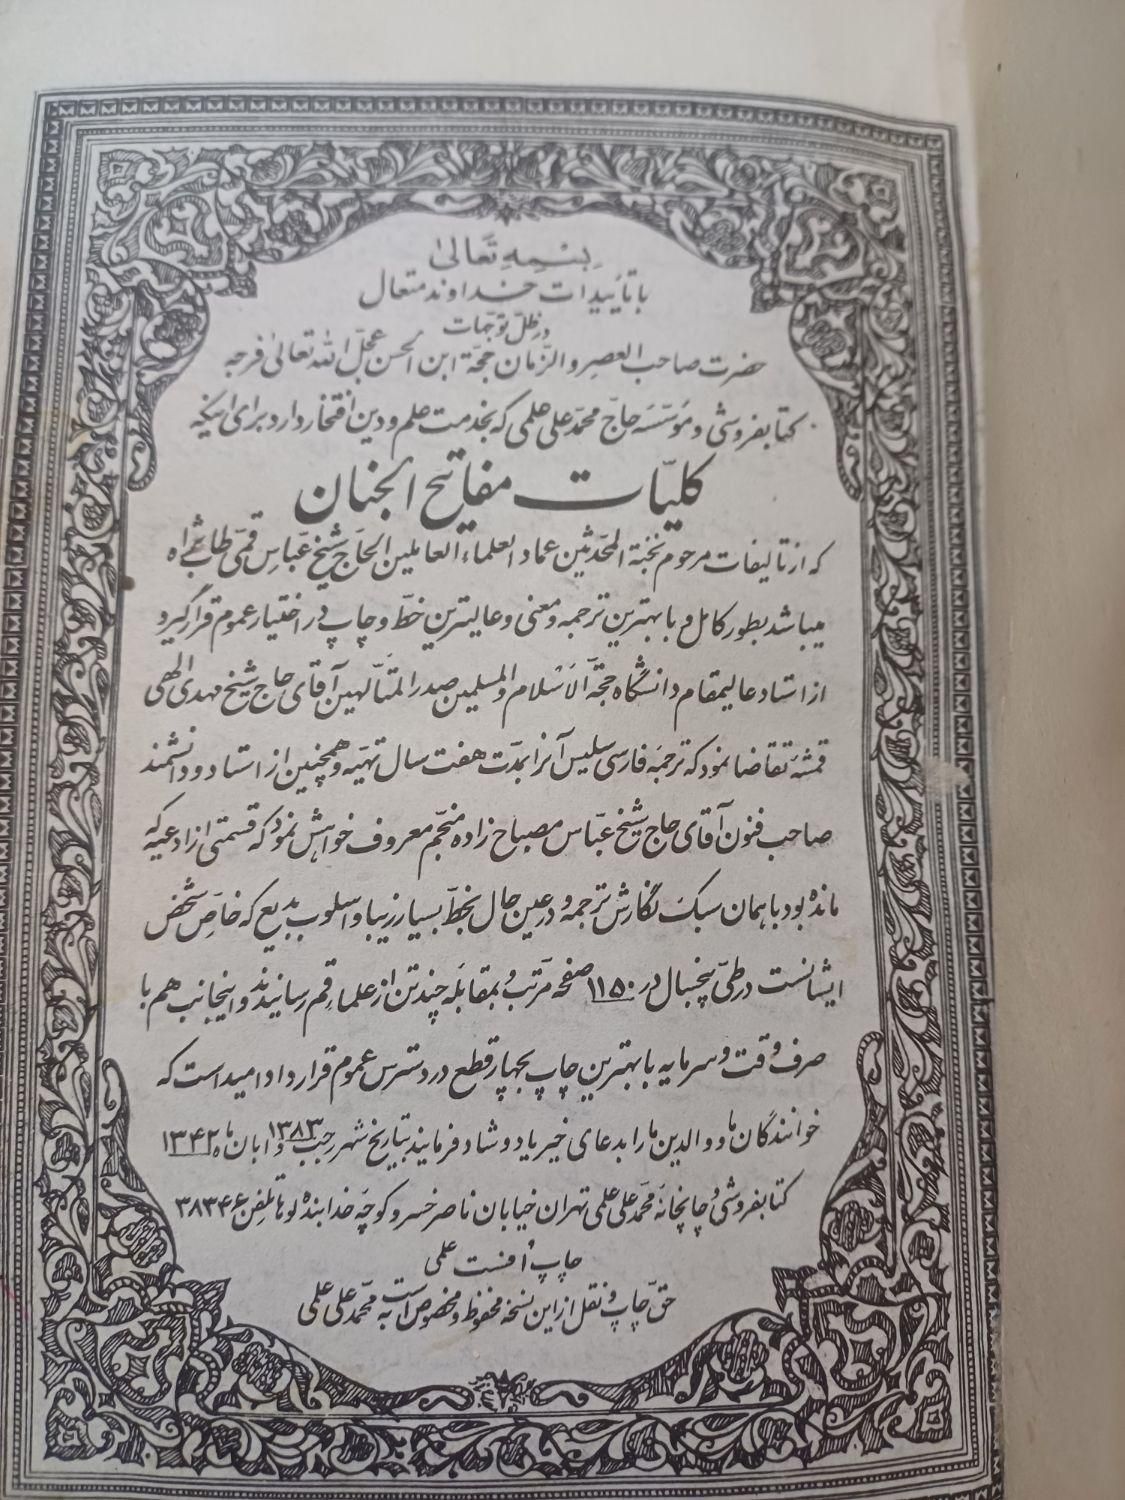 بِسْمِهِ تَعَالىٰ
با تأییدات خداوند متعال
در ظلّ توجّهات
حضرت صاحب العصر و الزّمان حجّة ابن الحسن عجّل الله تعالیٰ فرجه
کتابفروشی و مؤسّسه حاج محمّد علی علمی که بخدمت علم و دین افتخار دارد برای اینکه
کلیّات مفاتیح الجنان
که از تالیفات مرحوم نخبة المحدّثین عماد العلماء العاملین الحاج شیخ عبّاس قمّی طاب ثراه
میباشد بطور کامل و با بهترین ترجمه و معنی و عالیترین خطّ و چاپ در اختیار عموم قرار گیرد
از استاد عالیمقام دانشگاه حجّة الاسلام والمسلمین صدر المتألّهین آقای حاج شیخ مهدی الهی
قمشه تقاضا نمود که ترجمه فارسی سلیس آنرا بمدّت هفت سال تهیّه و همچنین از استاد و دانشمند
صاحب فنون آقای حاج شیخ عبّاس مصباح زاده منجّم معروف خواهش نمود که قسمتی از ادعیه که
مانده بود با همان سبک نگارش ترجمه و در عین حال بخطّ بسیار زیبا و اسلوب بدیع که خاصّ شخص
ایشانست در طیّ پنجسال در ۱۱۵۰ صفحه مرتّب و بمقابله چند تن از علماء قم رسانیدند و اینجانب هم با
صرف وقت و سرمایه با بهترین چاپ بچهار قطع در دسترس عموم قرار داد امید است که
خوانندگان ما و والدین ما را بدعای خیر یاد و شاد فرمایند بتاریخ شهر رجب ۱۳۸۳ و ابان ماه ۱۳۴۲
کتابفروشی و چاپخانه محمّد علی علمی تهران خیابان ناصر خسرو کوچه خدابنده لوها تلفن ۳۸۳۴۶
چاپ اُفست علمی
حقّ چاپ و نقل از این نسخه محفوظ و مخصوص است به محمّد علی علمی